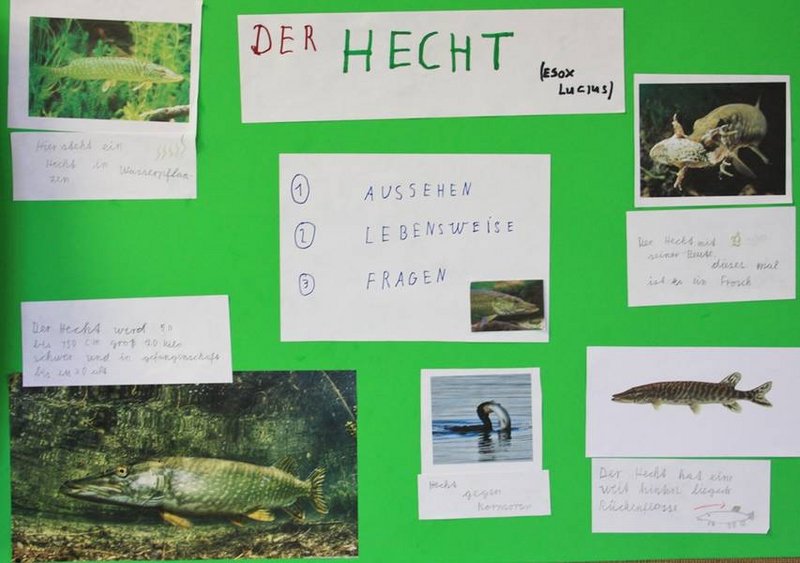 DER HECHT
(ESOX
LUCIUS)
Hier steht ein
Hecht in
Wasserpflan
zen
① AUSSEHEN
② LEBENSWEISE
③ FRAGEN
Der Hecht mit
seiner Beute
dieses mal
ist es ein Frosch
Der Hecht wird 50
bis 150 cm groß 20 kilo
schwer und in gefangenschaft
bis zu 30 alt
Hecht
gegen
Kormoran
Der Hecht hat eine
weit hinten liegende
Rückenflosse